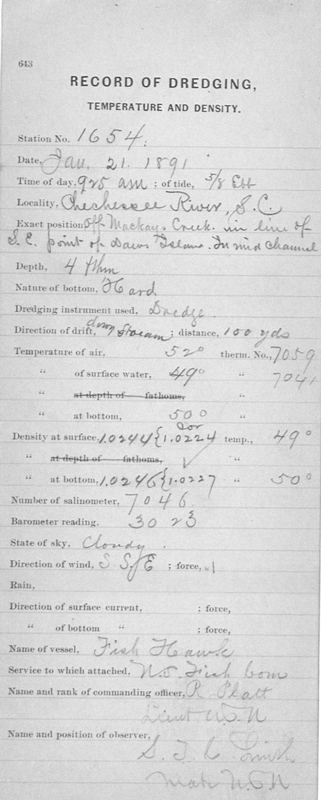 643
RECORD OF DREDGING,
TEMPERATURE AND DENSITY.
Station No. 1654.
Date, Jan. 21. 1891
Time of day, 9 25 am ; of tide, 5/8 Ebb
Locality, Chechessee River, S.C.
Exact position, Off Mackay. Creek. in line of
S.E. point of Daws Island. In mid channel
Depth, 4 fthm
Nature of bottom, Hard
Dredging instrument used, Dredge.
Direction of drift, down stream ; distance, 100 yds
Temperature of air, 52° therm. No., 7059
" of surface water, 49° " 7041
" at depth of fathoms,
" at bottom, 50° "
Density at surface, 1.0244 { 1.0224 temp., 49°
" at depth of fathoms,
" at bottom, 1.0246 { 1.0227 " 50°
Number of salinometer, 7046
Barometer reading, 30 23
State of sky, Cloudy.
Direction of wind, S S E ; force, 1
Rain,
Direction of surface current, ; force,
" of bottom " ; force,
Name of vessel, Fish Hawk
Service to which attached, Fish Com
Name and rank of commanding officer, R. Platt
Lieut U.S.N
Name and position of observer,
Smith
Mate U.S.N